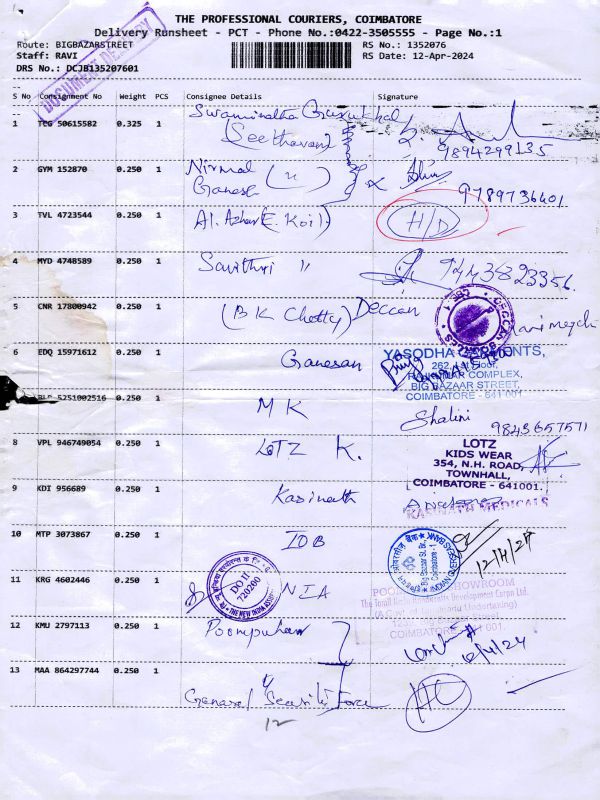 THE PROFESSIONAL COURIERS, COIMBATORE
Delivery Runsheet - PCT - Phone No.:0422-3505555 - Page No.:1
Route: BIGBAZARSTREET
RS No.: 1352076
Staff: RAVI
RS Date: 12-Apr-2024
DRS No.: DCJB135207601
DOCUMENT DELIVERY
S No Consignment No Weight PCS Consignee Details Signature
1 TCG 50615582 0.325 1 Swaminatha Gurukkal
(Seethavan)
9894299135
2 GYM 152870 0.250 1 Nirmal
Ganesh
9789736401
3 TVL 4723544 0.250 1 Al. Azhar (E. Koil) H/D
4 MYD 4748589 0.250 1 Savithri " 9443823356.
5 CNR 17800942 0.250 1 (B K Chetty) Deccan
6 EDQ 15971612 0.250 1 Ganesan
YASODHA GARMENTS,
262, 1st Floor,
COMPLEX,
BIG BAZAAR STREET,
COIMBATORE - 641 001.
5251002516 0.250 1 M K Shalini
9843657571
8 VPL 946749054 0.250 1 LOTZ K.
LOTZ
KIDS WEAR
354, N.H. ROAD,
TOWNHALL,
COIMBATORE - 641001.
9 KDI 956689 0.250 1 Kasinath
KASINATH MEDICALS
10 MTP 3073867 0.250 1 IOB
INDIAN OVERSEAS BANK
Big Bazaar St. Br.
Coimbatore - 1
12/4/24
11 KRG 4602446 0.250 1 NIA
DO II
720200
THE NEW INDIA
SHOWROOM
The Tamil Nadu Handicrafts Development Corpn Ltd.
(A Govt. of Tamilnadu Undertaking)
COIMBATORE - 641 001.
12 KMU 2797113 0.250 1 Poompuhar
12/4/24
13 MAA 864297744 0.250 1 "
General Security Force
12